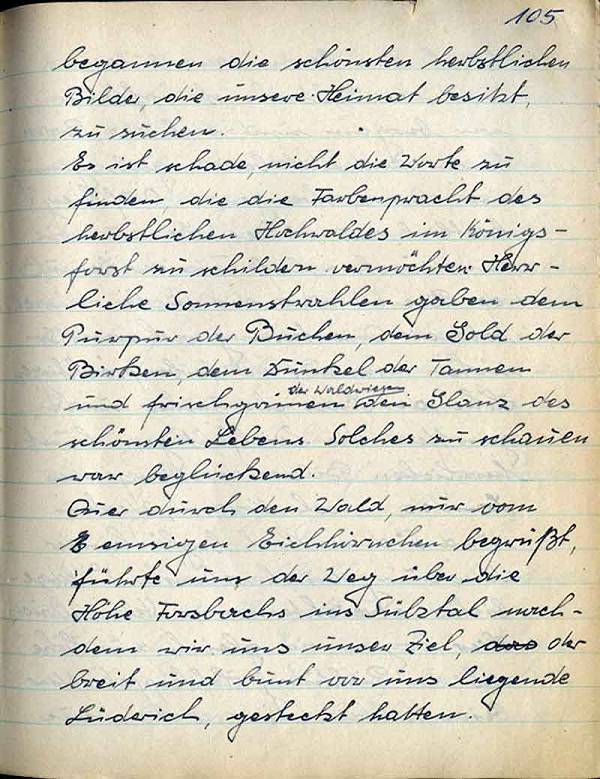 105
begannen die schönsten herbstlichen
Bilder, die unsere Heimat besitzt,
zu suchen.
Es ist schade, nicht die Worte zu
finden die die Farbenpracht des
herbstlichen Hochwaldes im Königs-
forst zu schildern vermöchten. Herr-
liche Sonnenstrahlen gaben dem
Purpur der Buchen, dem Gold der
Birken, dem Dunkel der Tannen
der Waldwiesen
und frischgrünen den Glanz des
schönsten Lebens. Solches zu schauen
war beglückend.
Quer durch den Wald, nur vom
E emsigen Eichhörnchen begrüßt,
führte uns der Weg über die
Höhe Forsbachs ins Sülztal nach-
dem wir uns unser Ziel, das der
breit und bunt vor uns liegende
Lüderich, gesteckt hatten.